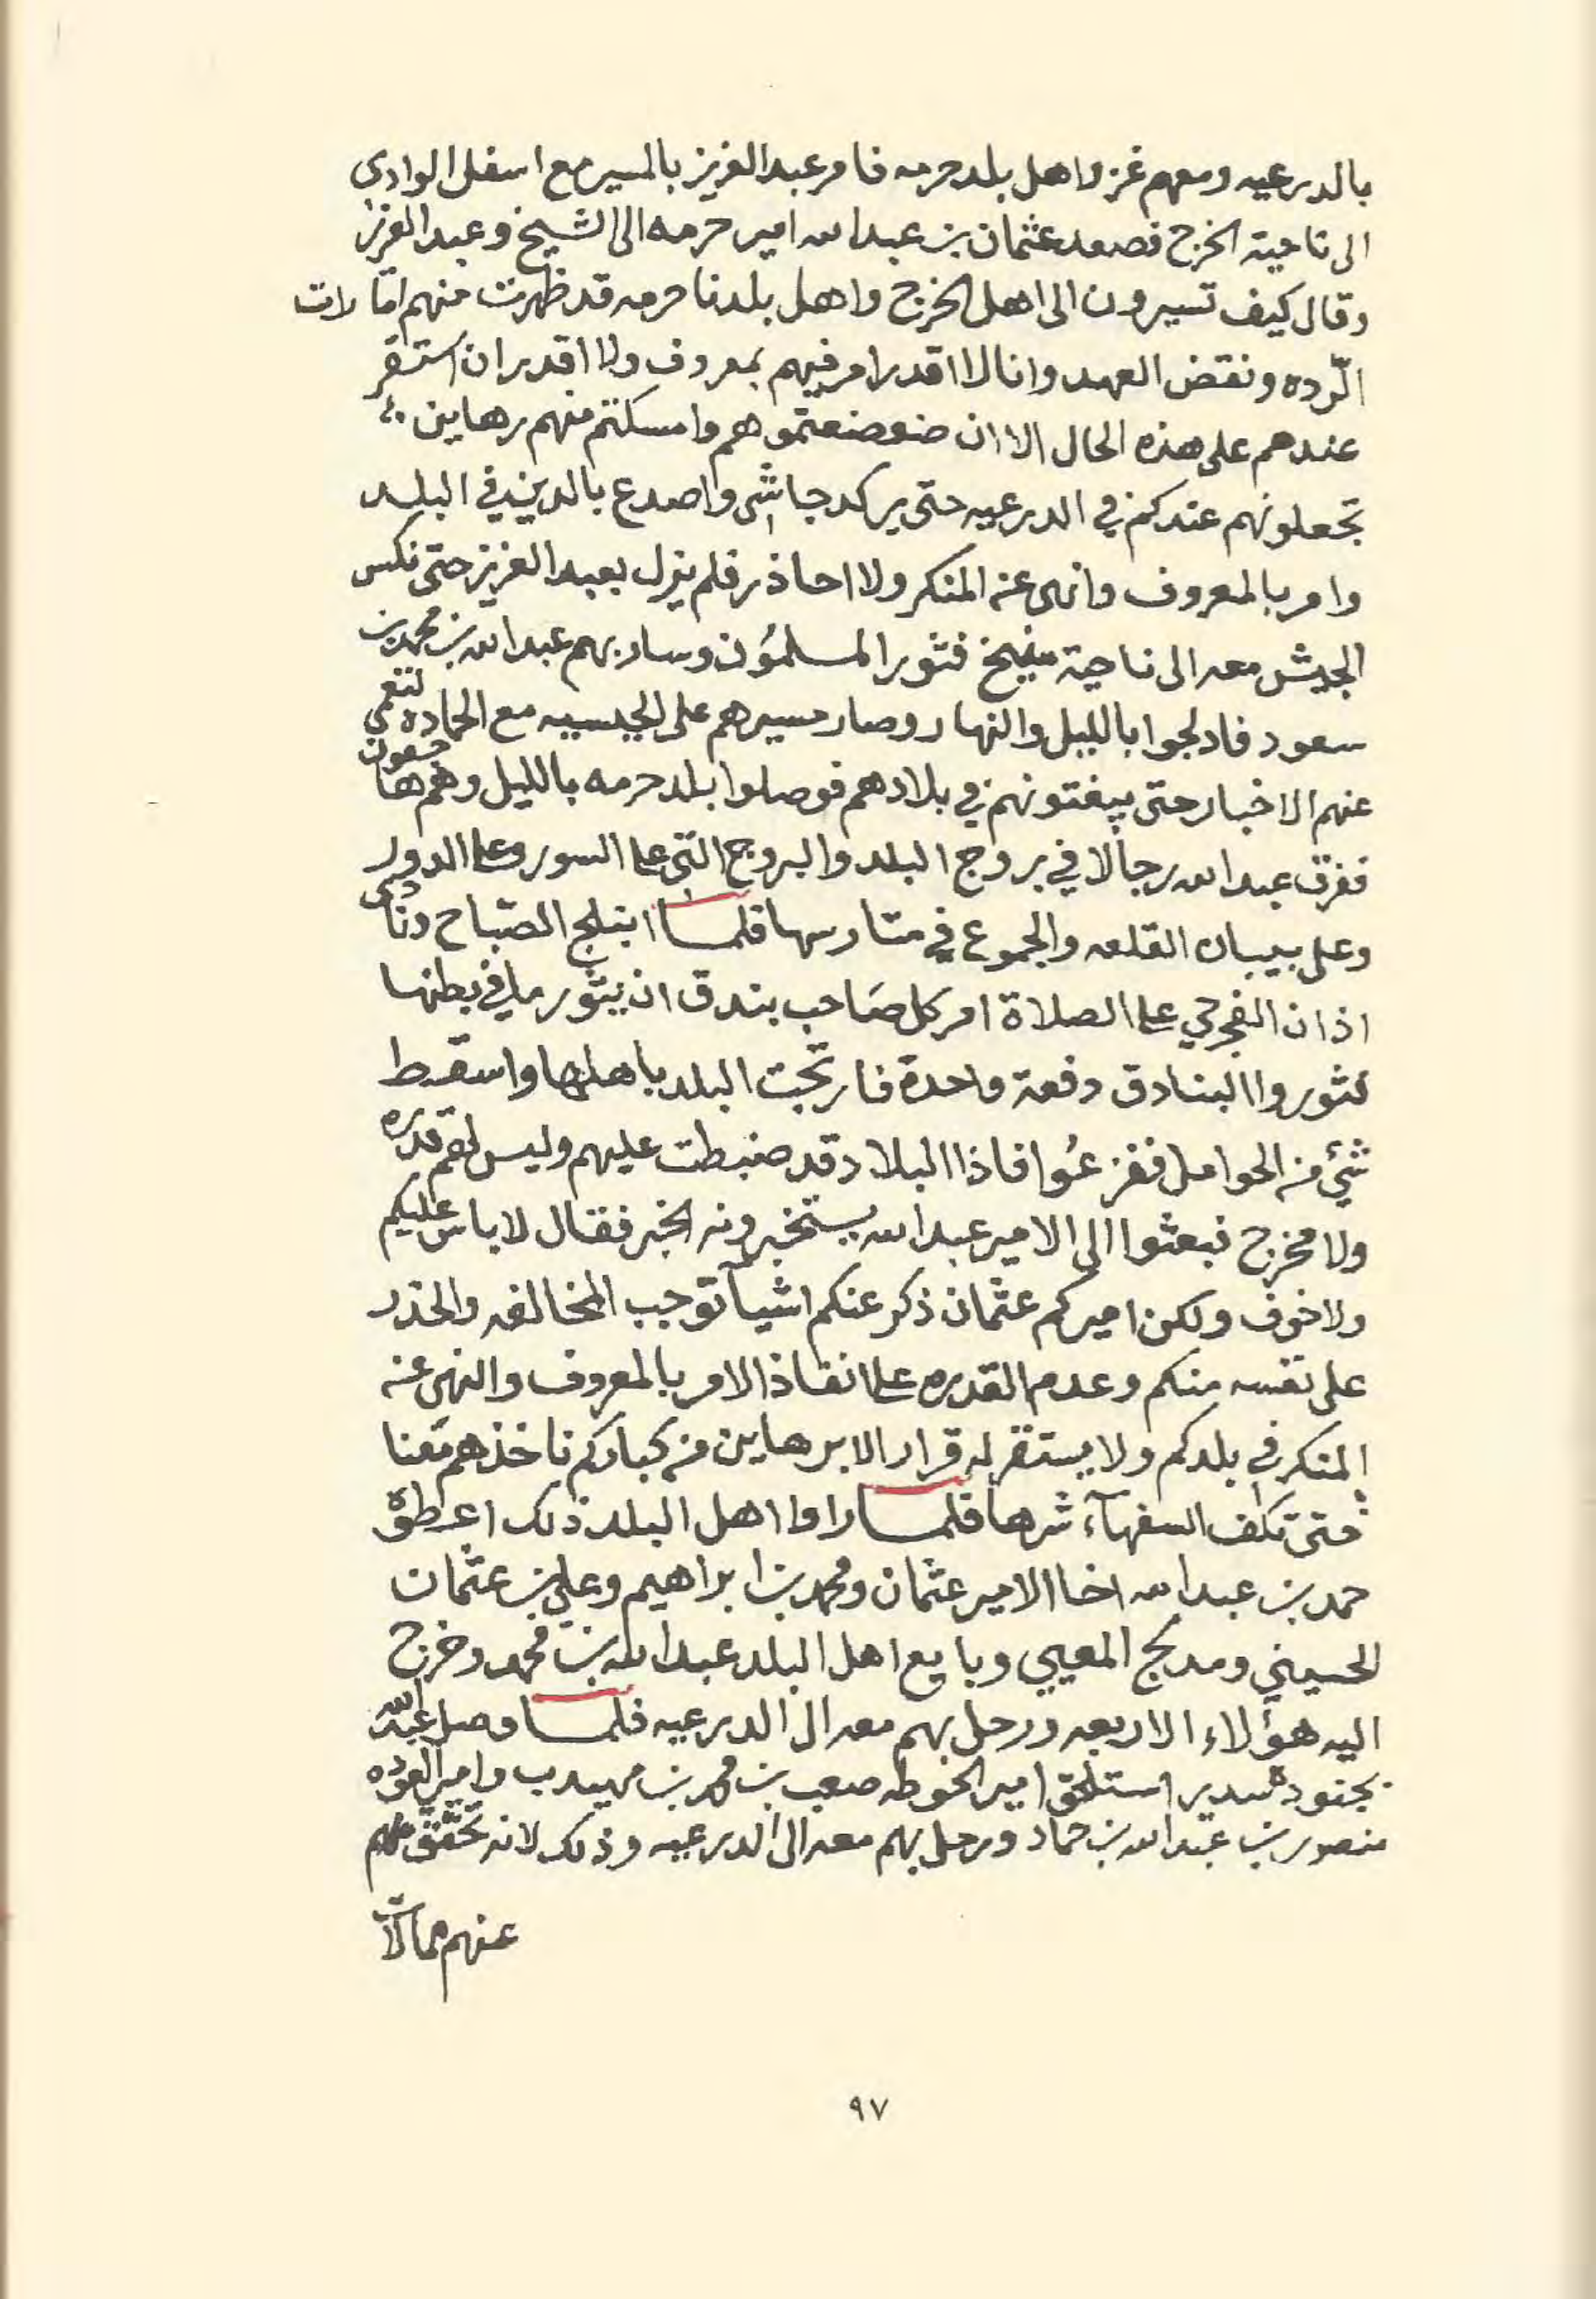 بالدرعيه ومعهم غزو اهل بلد حرمه فامر عبدالعزيز بالمسير مع اسفل الوادي
الى ناحية الخرج فصعد عثمان بن عبدالله امير حرمه الى الشيخ وعبدالعزيز
وقال كيف تسيرون الى اهل الخرج واهل بلدنا حرمه قد ظهرت منهم امارات
الرّده ونقض العهد وانا لا اقدر امر فيهم بمعروف ولا اقدر ان استقر
عندهم على هذه الحال الا ان ضعضعتموهم وامسكتم منهم رهاين
تجعلونهم عندكم في الدرعيه حتى يركد جاشي واصدع بالدين في البلد
وامر بالمعروف وانهى عن المنكر ولا احاذر فلم يزل بعبدالعزيز حتى نكس
الجيش معه الى ناحية منيخ فثور المسلمُون وسار بهم عبدالله بن محمد بن
سعود فادلجوا بالليل والنهار وصار مسيرهم على الجبيسيه مع الحماده لتعمي
عنهم الاخبار حتى يبغتونهم في بلادهم فوصلوا بلد حرمه بالليل وهم هاجعون
ففرق عبدالله رجالا في بروج البلد والبروج التي علا السور وعلا الدور
وعلى بيبان القلعه والجموع في متارسها فلما انبلج الصّباح ونادى
اذان الفجر حي علا الصلاة امر كل صَاحب بندق ان يثور ما في بطنها
فثوروا البنادق دفعة واحدة فارتجت البلد باهلها واسقط
شئ من الحوامل ففزعُوا فاذا البلاد قد ضبطت عليهم وليس لهم قدره
ولا مخرج فبعثوا الى الامير عبدالله يستخبرونه الخبر فقال لاباس عليكم
ولا خوف ولكن اميركم عثمان ذكر عنكم اشيآ توجب المخالفه والحذر
على نفسه منكم وعدم القدره علا انفاذ الامر بالمعروف والنهى عن
المنكر في بلدكم ولا يستقر له قرار الا برهاين من كباركم ناخذهم معنا
حتى تكف السفهآء شرها فلما راوا اهل البلد ذلك اعطوه
حمد بن عبدالله اخا الامير عثمان ومحمد بن ابراهيم وعلي بن عثمان
الحسيني ومدلج المعيي وبايع اهل البلد عبدالله بن محمد وخرج
اليه هؤلاء الاربعه ورحل بهم معه الى الدرعيه فلما وصل عبدالله
بجنوده سدير استلحق امير الحوطه صعب بن محمد بن مهيدب وامير العوده
منصور بن عبدالله بن حماد ورحل بهم معه الى الدرعيه وذلك لانه تحقق
عنهم ممالات
٩٧